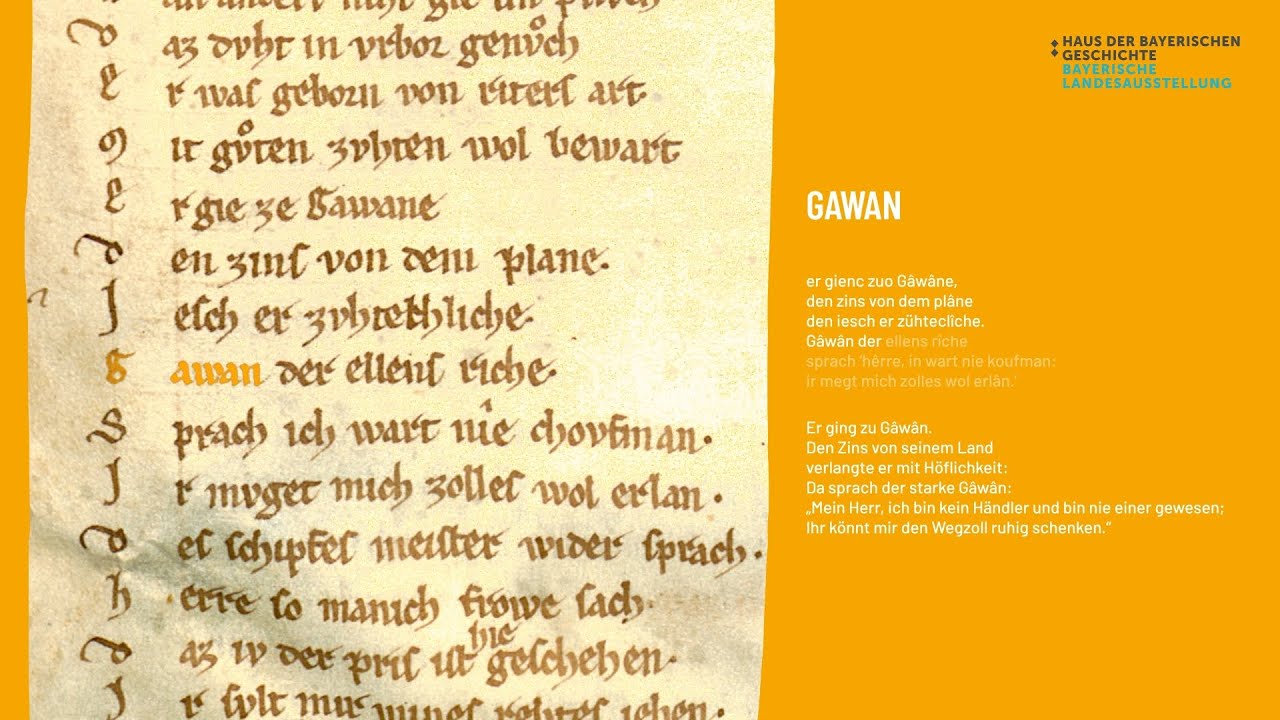 az dvht in vrbor genvͦch
e r was geborn von riters art.
m it gvͦten zvhten wol bewart
e r gie ze Gawane
d en zins von dem plane.
I esch er zvhtekhliche.
G awan der ellens riche.
S prach ich wart nîe chovfman.
I r mvget mich zolles wol erlan.
d es schiffes meister wider sprach.
h erre so manich frowe sach.
d az iv der pris ist hie geschehen.
I r svlt mir mines rehtes iehen.
HAUS DER BAYERISCHEN
GESCHICHTE
BAYERISCHE
LANDESAUSSTELLUNG
GAWAN
er gienc zuo Gâwâne,
den zins von dem plâne
den iesch er zühteclîche.
Gâwân der ellens rîche
sprach ‘hêrre, in wart nie koufman:
ir megt mich zolles wol erlân.’
Er ging zu Gâwân.
Den Zins von seinem Land
verlangte er mit Höflichkeit:
Da sprach der starke Gâwân:
„Mein Herr, ich bin kein Händler und bin nie einer gewesen;
Ihr könnt mir den Wegzoll ruhig schenken.“